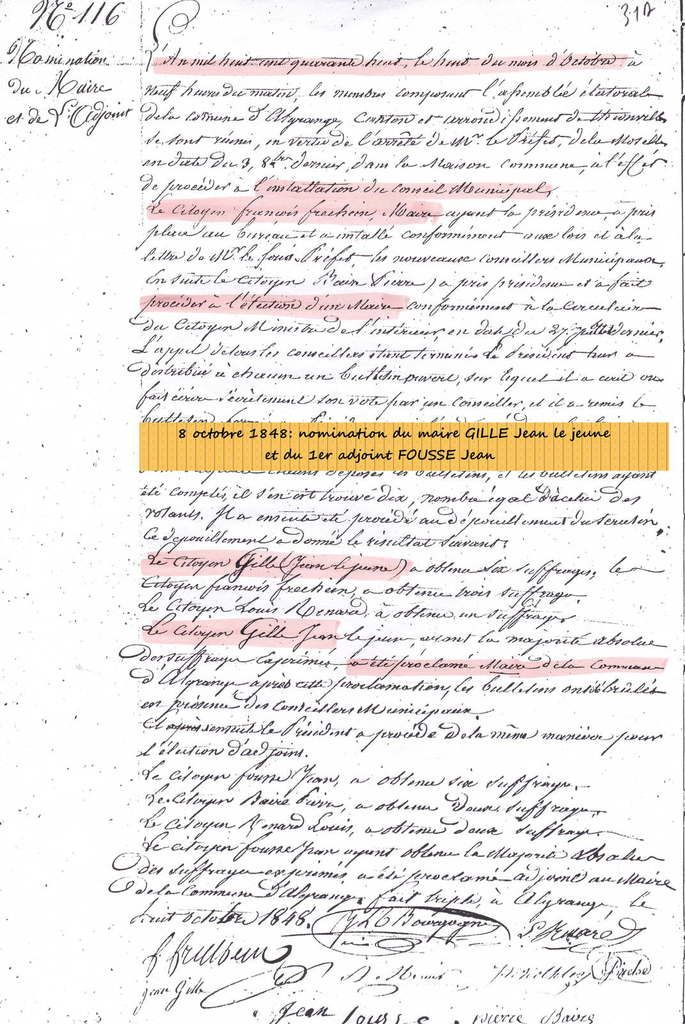 N° 116
317
Nomination
du Maire
et de l'Adjoint
L'An mil huit cent quarante huit, le huit du mois d'Octobre à
neuf heures du matin, les membres composant l'assemblée électorale
de la comune d'Algrange, Canton et arrondissement de thionville
se sont réunis, en vertu de l'arrêté de Mr. le Préfet de la Moselle
en date du 3, 8bre dernier, dans la Maison commune, à l'effet
de procéder à l'installation du Conseil Municipal,
Le Citoyen francois frechein, Maire ayant la présidence a pris
place au bureau et a installé conformément aux lois et à la
lettre de Mr. le Sous Préfet, les nouveaux conseillers Municipaux,
Ensuite le Citoyen Pierre) a pris présidence et a fait
procéder à l'élection d'un Maire conformément à la Circulaire
du Citoyen Ministre de l'intérieur, en date du 27 dernier,
L'appel de tous les conseillers étant terminés le Président leur a
distribué à chacun un bulletin ouvert, sur lequel il a écrit ou
fait écrire secrètement son vote par un Conseiller, et il a remis le
8 octobre 1848: nomination du maire GILLE Jean le jeune
et du 1er adjoint FOUSSE Jean
déposés les bulletins, et les bulletins ayant
été comptés, il s'en est trouvé dix, nombre égal à celui des
votants. Il a ensuite été procédé au dépouillement du scrutin,
Ce dépouillement a donné le résultat suivant:
Le Citoyen Gille (Jean le jeune) a obtenu six suffrages, le
Citoyen francois frechein, a obtenu trois suffrages
Le Citoyen Louis Renard, à obtenu un suffrage.
Le Citoyen Gille Jean le jeune ayant la majorité absolue
des suffrages exprimés, a été proclamé Maire de la Commune
d'Algrange après cette proclamation, les bulletins ont été brûlés
en présence des Conseillers Municipaux.
Et après ensuite le Président a procédé de la même manière pour
l'élection d'adjoins.
Le Citoyen fousse Jean, a obtenu six suffrages,
Le Citoyen Baire Pierre, a obtenu deux suffrages,
Le Citoyen Renard Louis, a obtenu deux suffrages
Le citoyen fousse Jean ayant obtenu la Majorité absolue
des suffrages exprimés a été proclamé adjoint au Maire
de la Commune D'Algrange, fait triple, à Algrange, le
huit octobre 1848.
Bourgogne
Jean Gille
Jean
pierre Baire